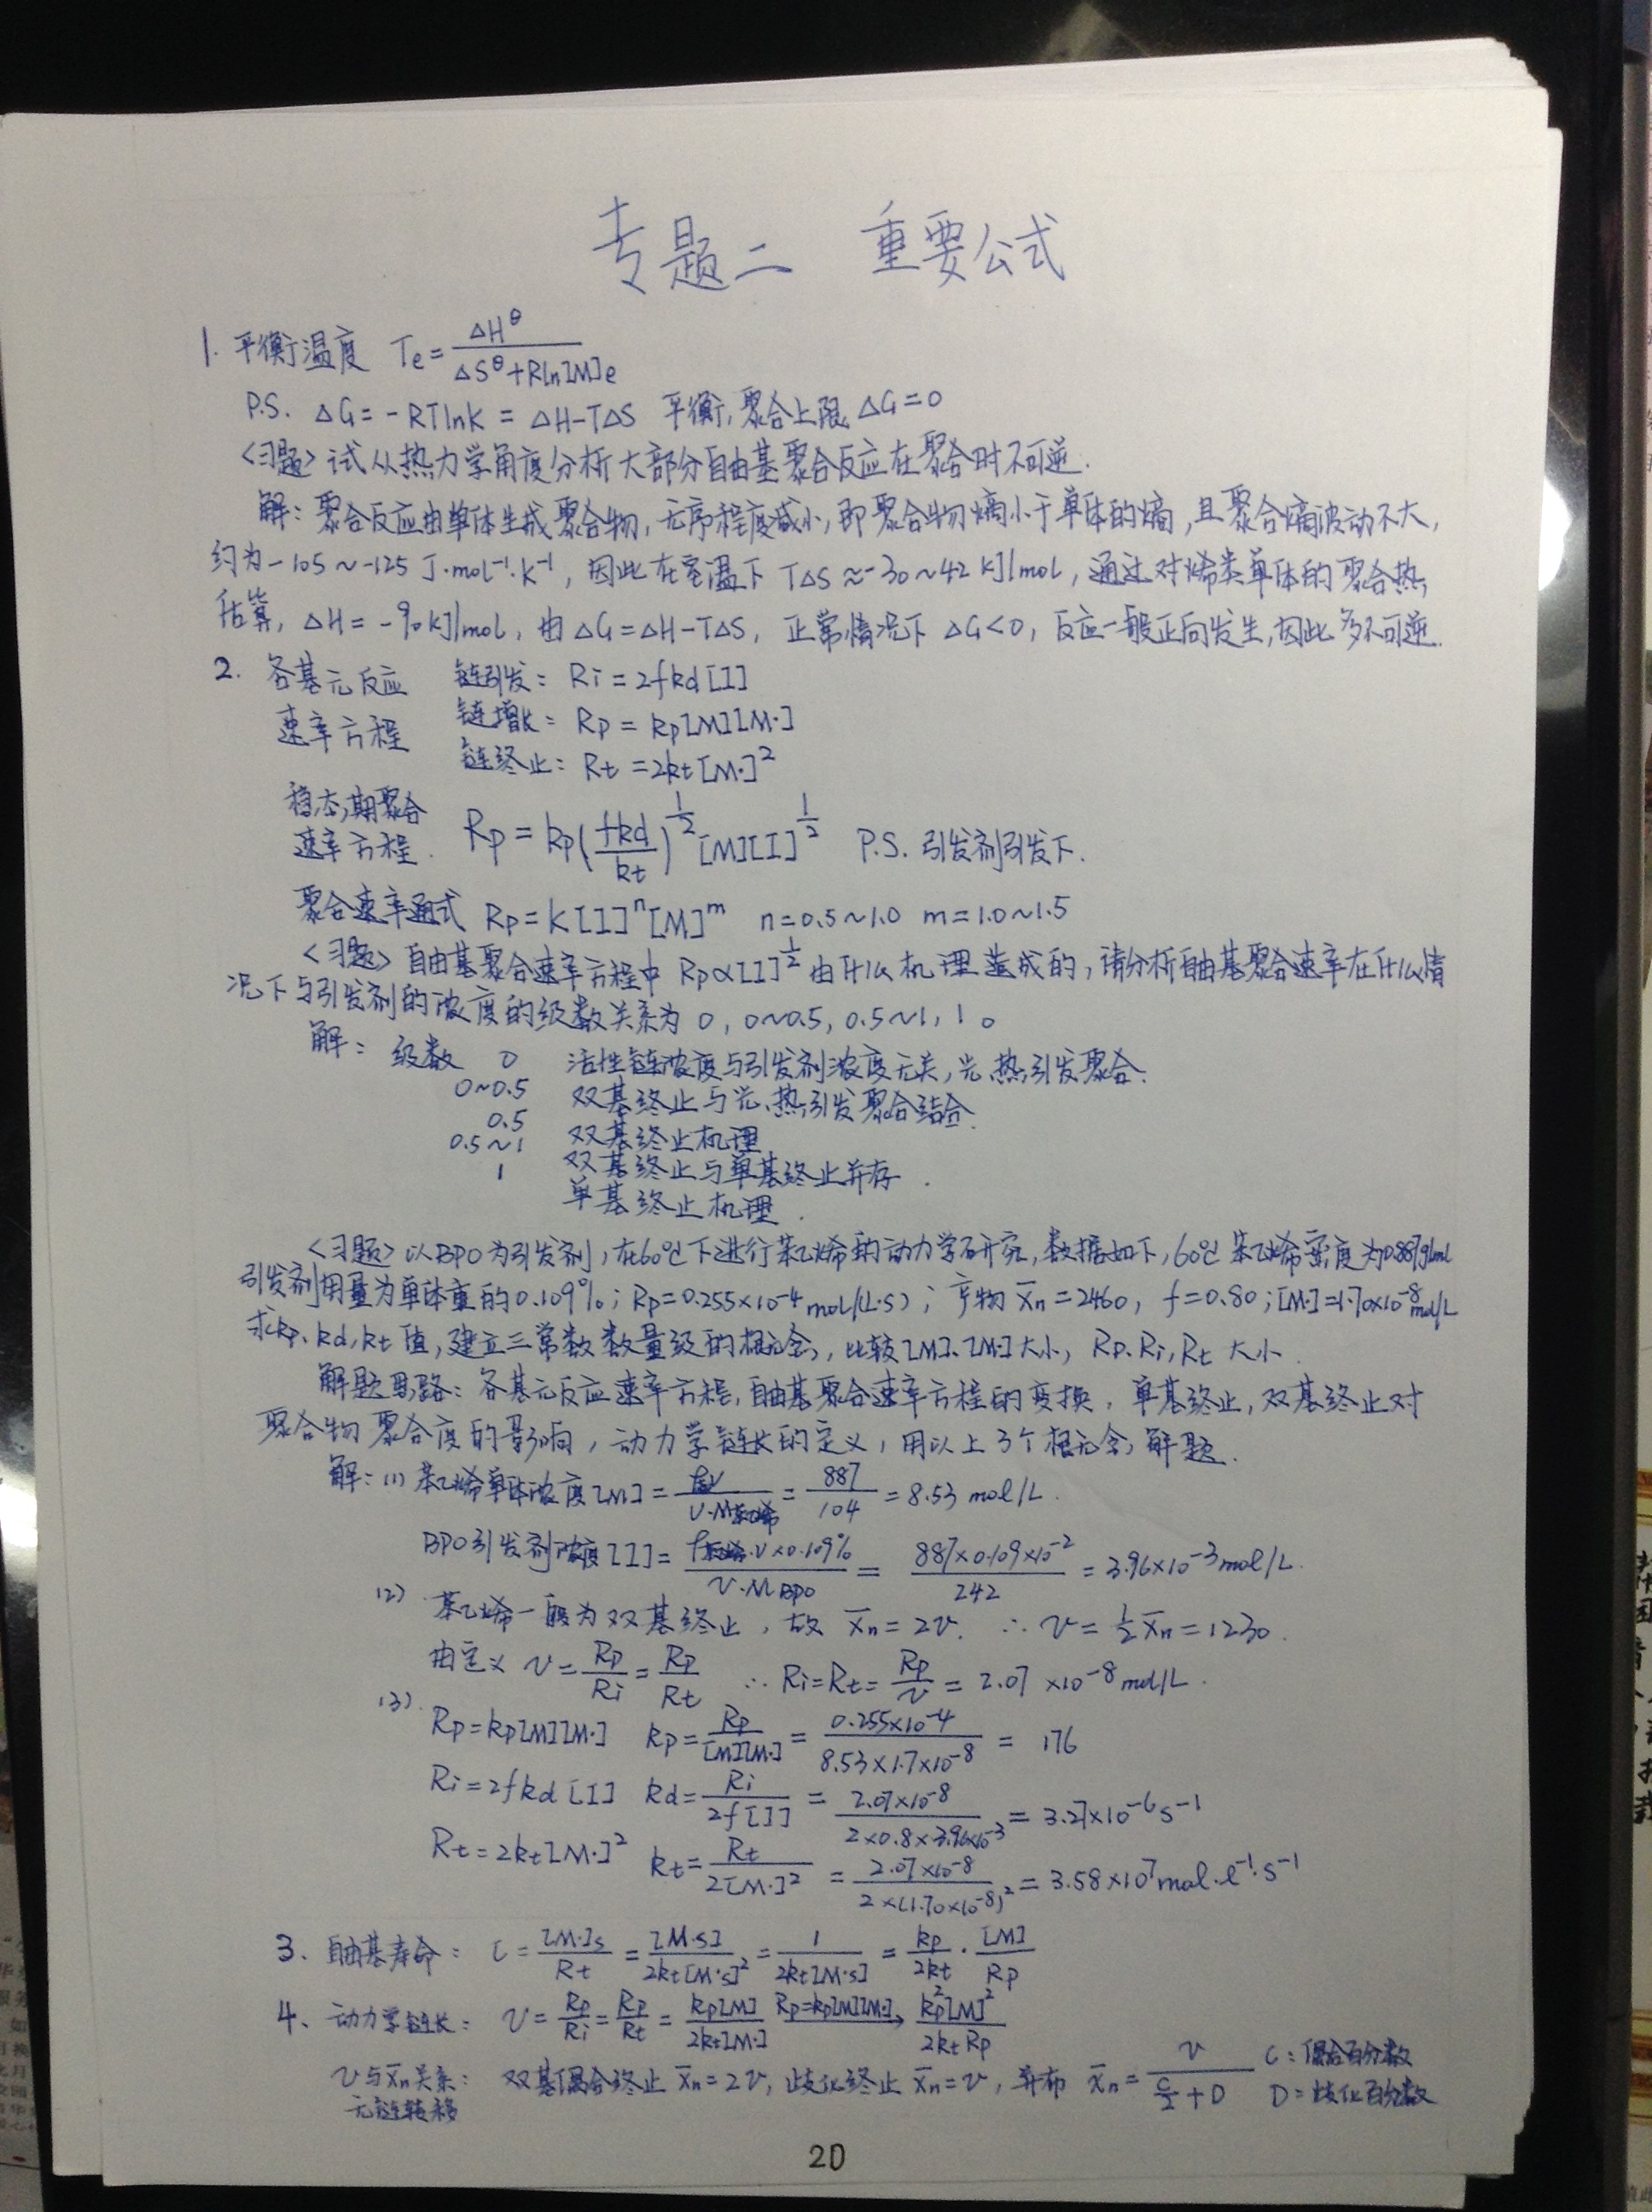 专题二 重要公式
1. 平衡温度 Te = ΔH^θ / (ΔS^θ + Rln[M]e)
P.S. ΔG = -RTlnK = ΔH-TΔS 平衡,聚合上限 ΔG=0
<习题> 试从热力学角度分析大部分自由基聚合反应在聚合时不可逆.
解: 聚合反应由单体生成聚合物, 无序程度减小, 即聚合物熵小于单体的熵, 且聚合熵波动不大,
约为-105~-125 J·mol⁻¹·K⁻¹, 因此在室温下 TΔS ≈ -30~42 kJ/mol, 通过对烯类单体的聚合热
估算, ΔH = -90kJ/mol, 由 ΔG=ΔH-TΔS, 正常情况下 ΔG<0, 反应一般正向发生,因此多不可逆.
2. 各基元反应 链引发: Ri = 2fkd[I]
速率方程 链增长: Rp = kp[M][M·]
链终止: Rt = 2kt[M·]²
稳态期聚合
速率方程. Rp = kp(fkd/kt)^½ [M][I]^½ P.S. 引发剂引发下.
聚合速率通式 Rp = K[I]ⁿ[M]ᵐ n=0.5~1.0 m=1.0~1.5
<习题> 自由基聚合速率方程中 Rp∝[I]^½ 由什么机理造成的, 请分析自由基聚合速率在什么情
况下与引发剂的浓度的级数关系为 0, 0~0.5, 0.5~1, 1。
解: 级数 0 活性链浓度与引发剂浓度无关, 光、热引发聚合.
0~0.5 双基终止与光、热引发聚合结合.
0.5 双基终止机理
0.5~1 双基终止与单基终止并存.
1 单基终止机理.
<习题> 以BPO为引发剂, 在60℃下进行苯乙烯的动力学研究, 数据如下, 60℃苯乙烯密度为0.887g/ml
引发剂用量为单体重的0.109%; Rp=0.255×10⁻⁴mol/(L·s); 产物 X̄n=2460, f=0.80; [M·]=1.70×10⁻⁸mol/L
求kp、kd、kt值, 建立三常数数量级的概念, 比较[M]、[M·]大小, Rp、Ri、Rt 大小.
解题思路: 各基元反应速率方程, 自由基聚合速率方程的变换, 单基终止, 双基终止对
聚合物聚合度的影响, 动力学链长的定义, 用以上3个概念解题.
解: (1) 苯乙烯单体浓度[M] = ρV / (V·M苯乙烯) = 887/104 = 8.53 mol/L.
BPO引发剂浓度[I] = ρ苯乙烯·V×0.109% / (V·M BPO) = 887×0.109×10⁻² / 242 = 3.96×10⁻³mol/L.
(2) 苯乙烯一般为双基终止, 故 X̄n = 2ν. ∴ ν = ½X̄n = 1230.
由定义 ν = Rp/Ri = Rp/Rt ∴ Ri=Rt = Rp/ν = 2.07×10⁻⁸ mol/L.
(3). Rp=kp[M][M·] kp = Rp/([M][M·]) = 0.255×10⁻⁴ / (8.53×1.7×10⁻⁸) = 176
Ri=2fkd[I] kd = Ri/(2f[I]) = 2.07×10⁻⁸ / (2×0.8×3.96×10⁻³) = 3.27×10⁻⁶s⁻¹
Rt=2kt[M·]² kt = Rt/(2[M·]²) = 2.07×10⁻⁸ / (2×(1.70×10⁻⁸)²) = 3.58×10⁷mol·l⁻¹·s⁻¹
3、自由基寿命: τ = [M·]s/Rt = [M·s]/(2kt[M·s]²) = 1/(2kt[M·s]) = kp/2kt · [M]/Rp
4、动力学链长: ν = Rp/Ri = Rp/Rt = kp[M]/(2kt[M·]) Rp=kp[M][M·]→ kp²[M]²/(2ktRp)
ν与X̄n关系: 双基偶合终止 X̄n=2ν, 歧化终止 X̄n=ν, 并存 X̄n = ν/(C/2 + D) C: 偶合百分数
无链转移 D=歧化百分数
20